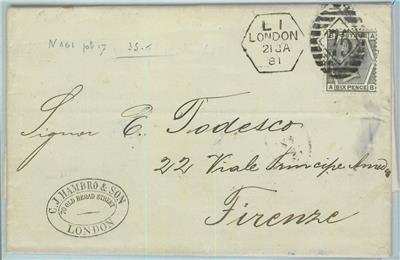 35.-
LI
LONDON
21 JA
81
A SIX PENCE B
Signor E. Todesco
22 Viale Principe Amedeo
Firenze
C. J. HAMBRO & SON
70 OLD BROAD STREET
LONDON